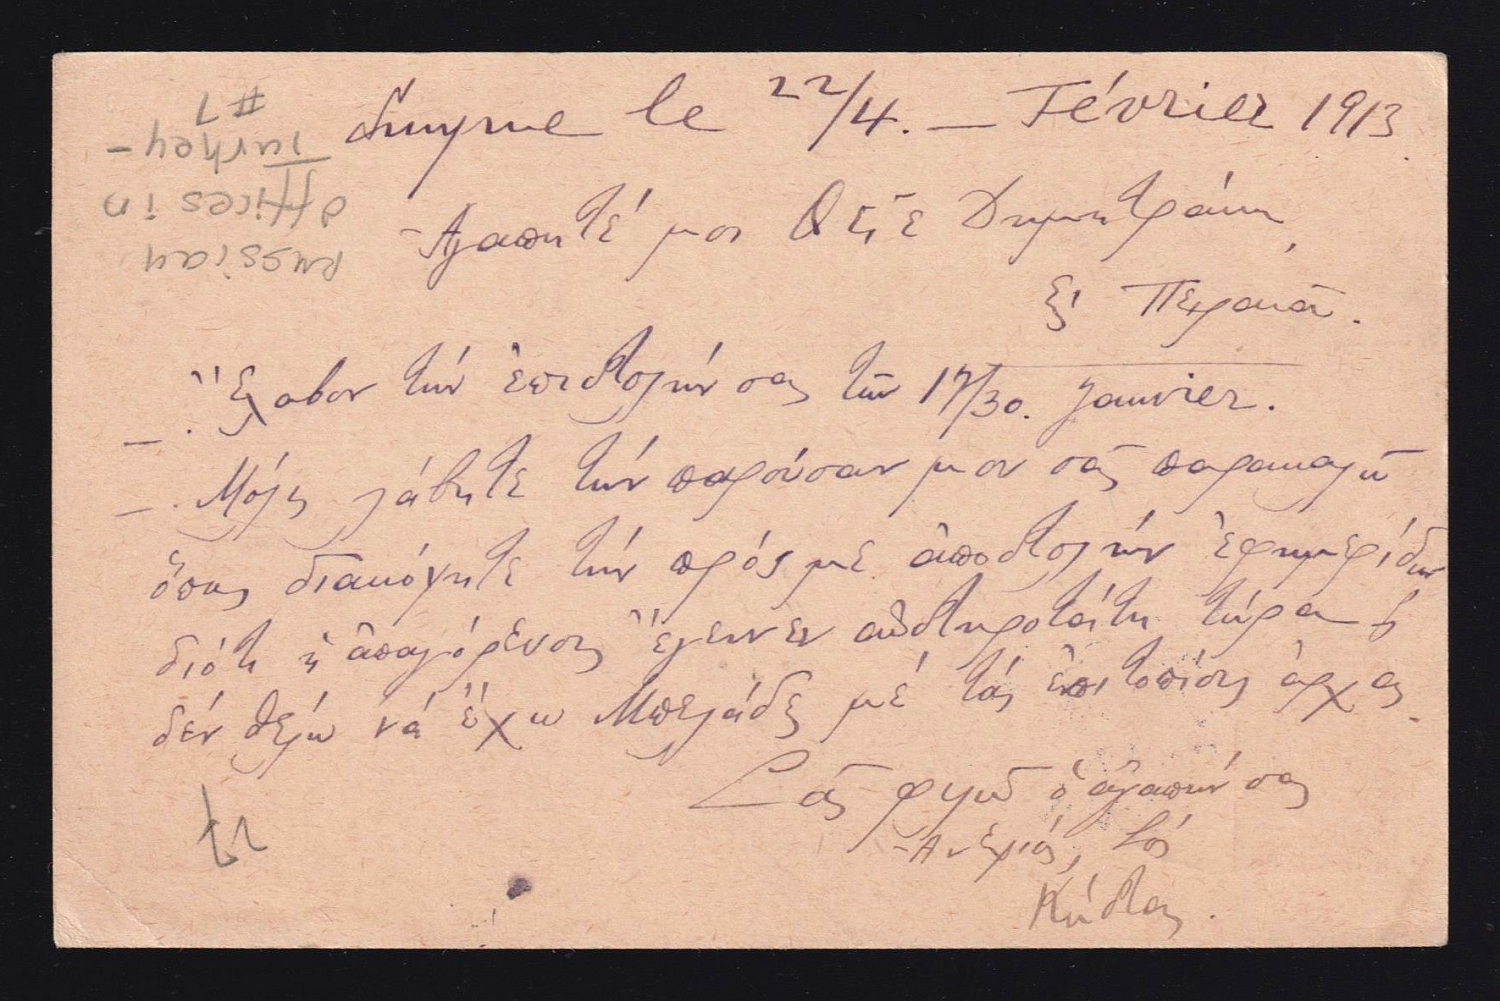 Smyrne le 22/4. — Février 1913
Ἀγαπητέ μοι Θεῖε Δημητράκη,
εἰς Πειραιᾶ.
— . Ἔλαβον τήν ἐπιστολήν σας τῆς 17/30. Janvier.
— . Μόλις λάβητε τήν παροῦσαν μου σᾶς παρακαλῶ
ὅπως διακόψητε τήν πρός με ἀποστολήν ἐφημερίδων
διότι ἡ ἀπαγόρευσις ἔγεινεν αὐστηροτάτη τώρα
δέν θέλω νά ἔχω Μπελάδες μέ τάς ἐπιτοπίους ἀρχάς.
Σᾶς φιλῶ ὁ ἀγαπῶν σας
Ἀνεψιός, σός
Κώστας.
Russian
offices in
Turkey -
#7